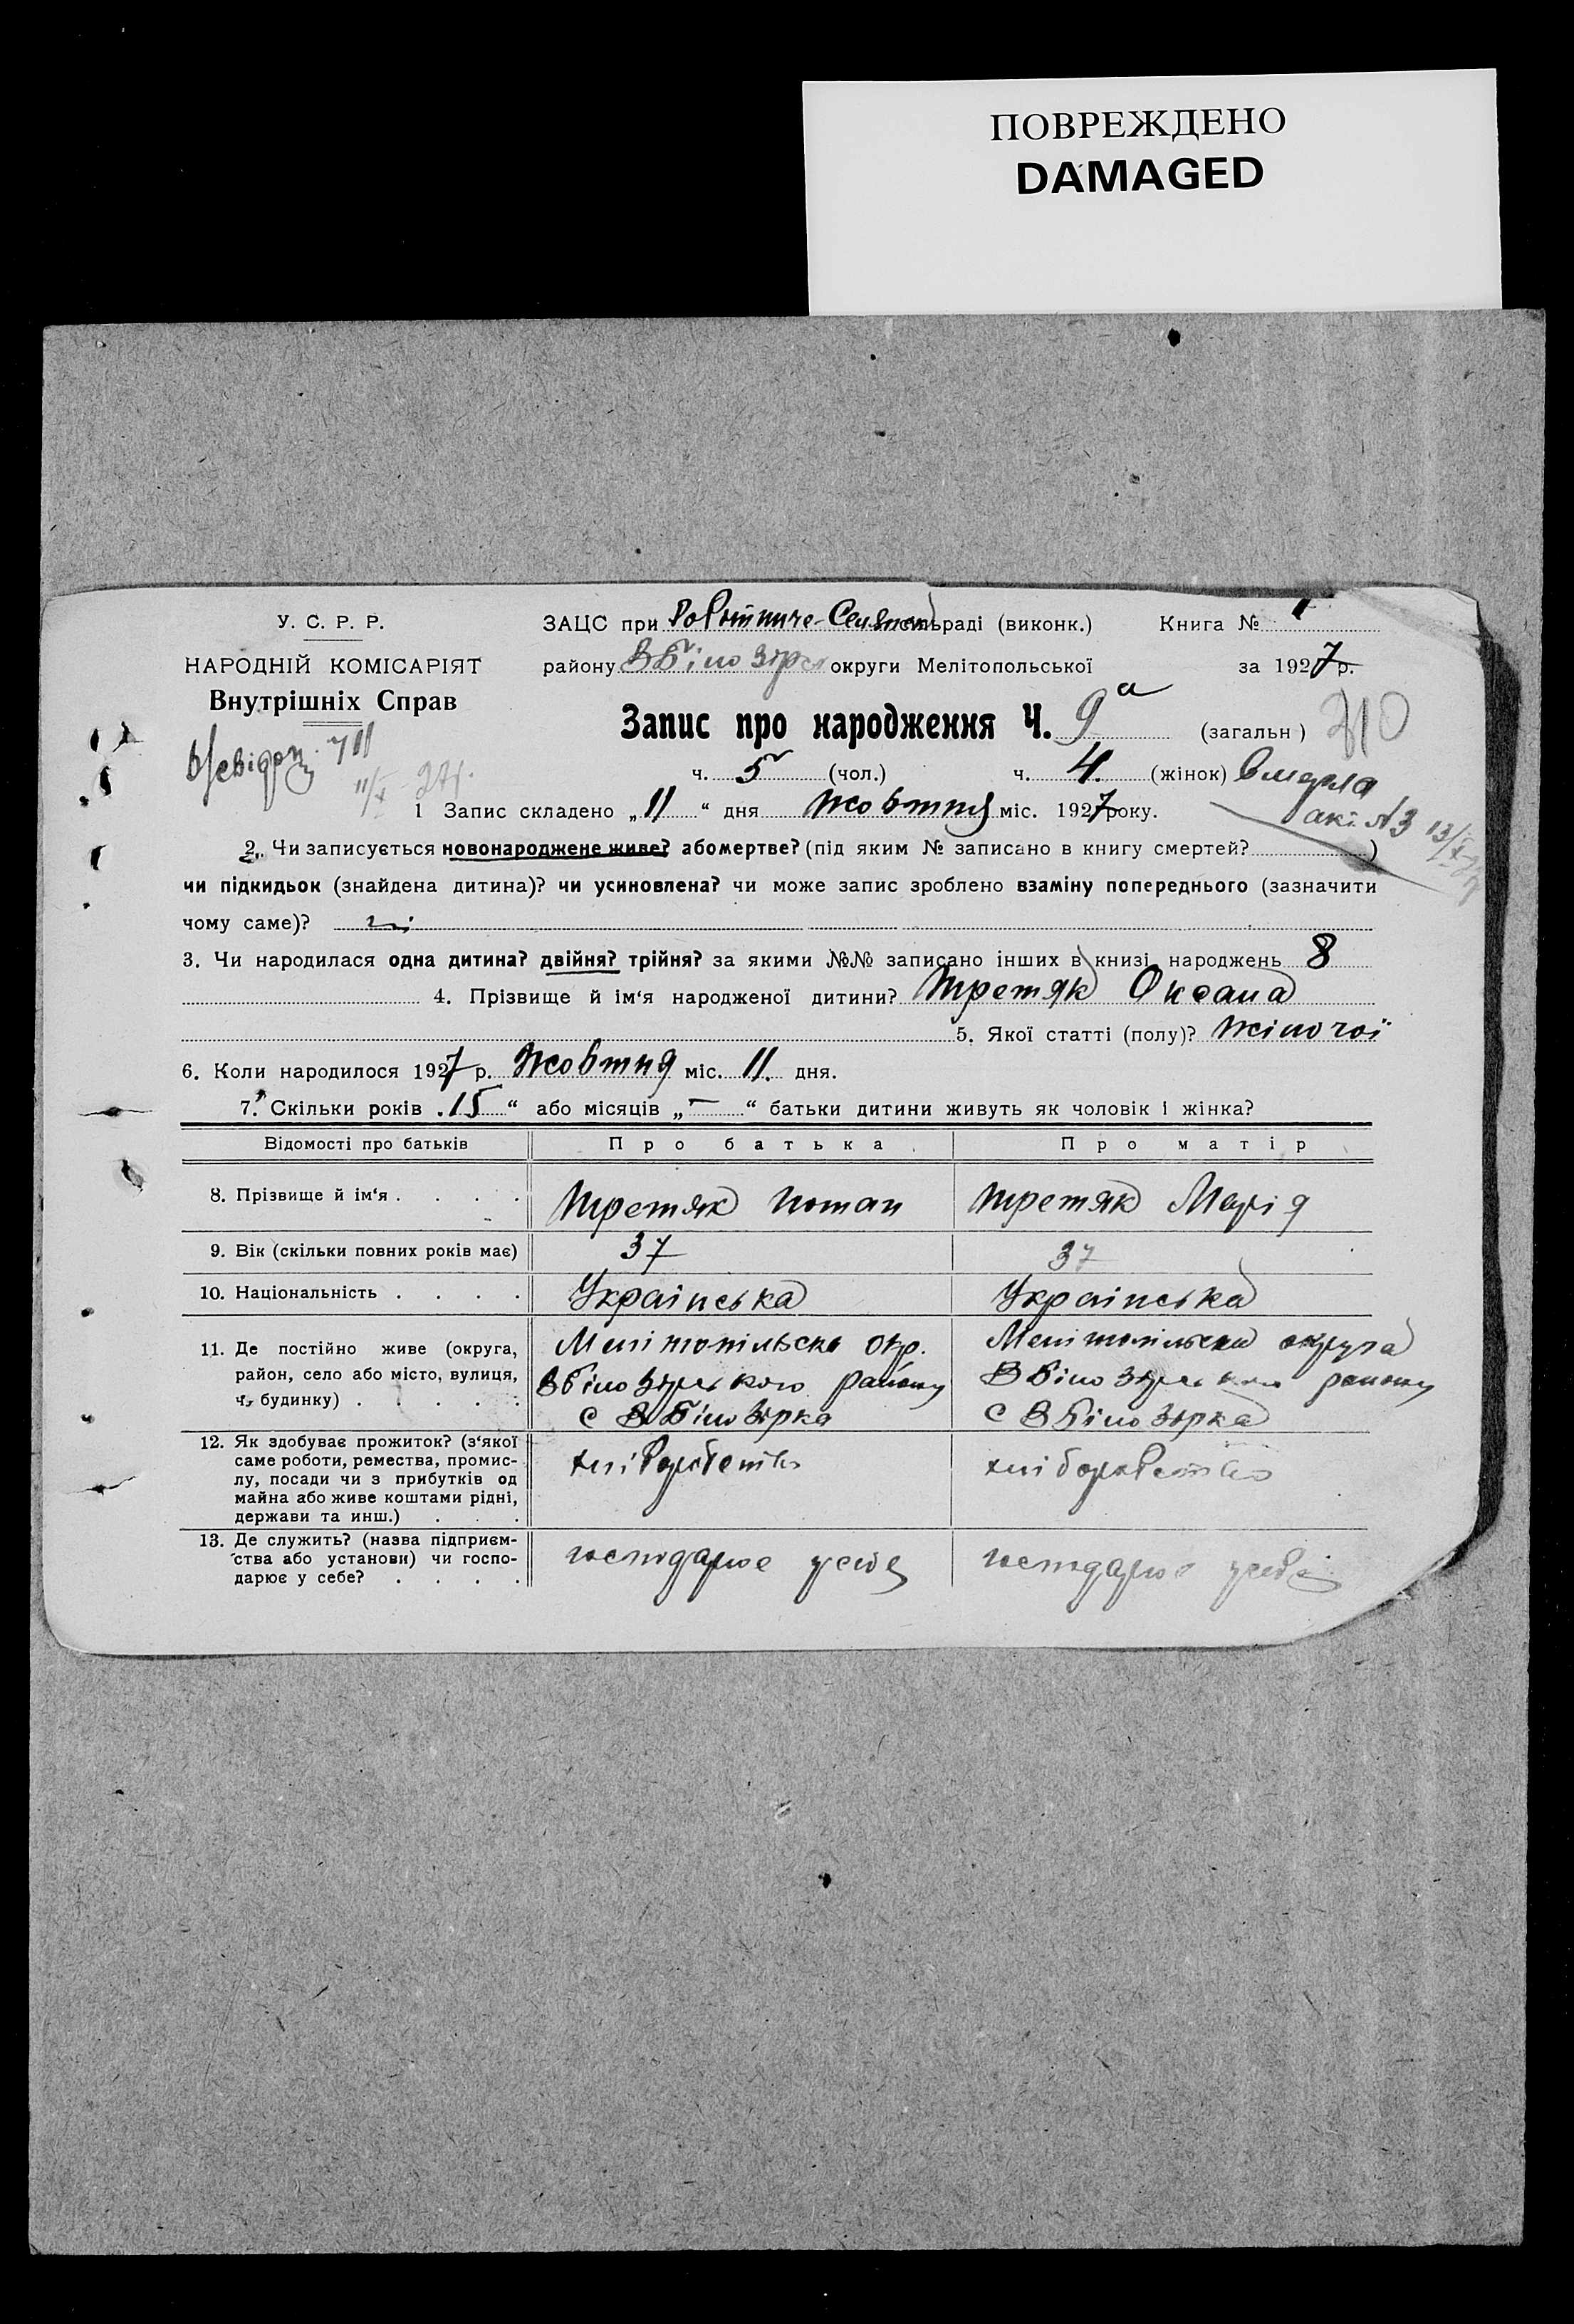 ПОВРЕЖДЕНО
DAMAGED
У. С. Р. Р.
НАРОДНІЙ КОМІСАРІЯТ
Внутрішніх Справ
ЗАЦС при раді (виконк.) Книга №
району В Білозірсь округи Мелітопольської за 1927 р.
Запис про народження Ч. 9а (загальн) 310
ч. 5 (чол.) ч. 4. (жінок) вмерла
акт №3 13/X
11/X 27р.
1 Запис складено „11“ дня Жовтня міс. 1927 року.
2. Чи записується новонароджене живе? або мертве? (під яким № записано в книгу смертей? )
чи підкидьок (знайдена дитина)? чи усиновлена? чи може запис зроблено взаміну попереднього (зазначити
чому саме)? ні
3. Чи народилася одна дитина? двійня? трійня? за якими №№ записано інших в книзі народжень 8
4. Прізвище й ім‘я народженої дитини? Третяк Оксана
5. Якої статті (полу)? жіночої
6. Коли народилося 1927 р. Жовтня міс. 11. дня.
7. Скільки років „15“ або місяців „—“ батьки дитини живуть як чоловік і жінка?
Відомості про батьків Про батька Про матір
8. Прізвище й ім‘я . . . . Третяк Потап Третяк Марія
9. Вік (скільки повних років має) 37 37
10. Національність . . . . Українська Українська
11. Де постійно живе (округа, Мелітопільська окр. Мелітопільська округа
район, село або місто, вулиця, В Білозірського району В Білозірського району
ч. будинку) . . . . . с В Білозірка с В Білозірка
12. Як здобуває прожиток? (з‘якої хліборобство хліборобство
саме роботи, ремества, промис-
лу, посади чи з прибутків од
майна або живе коштами рідні,
держави та инш.) . . .
13. Де служить? (назва підприєм- господарює у себе господарює у себе
ства або установи) чи госпо-
дарює у себе? . . . .